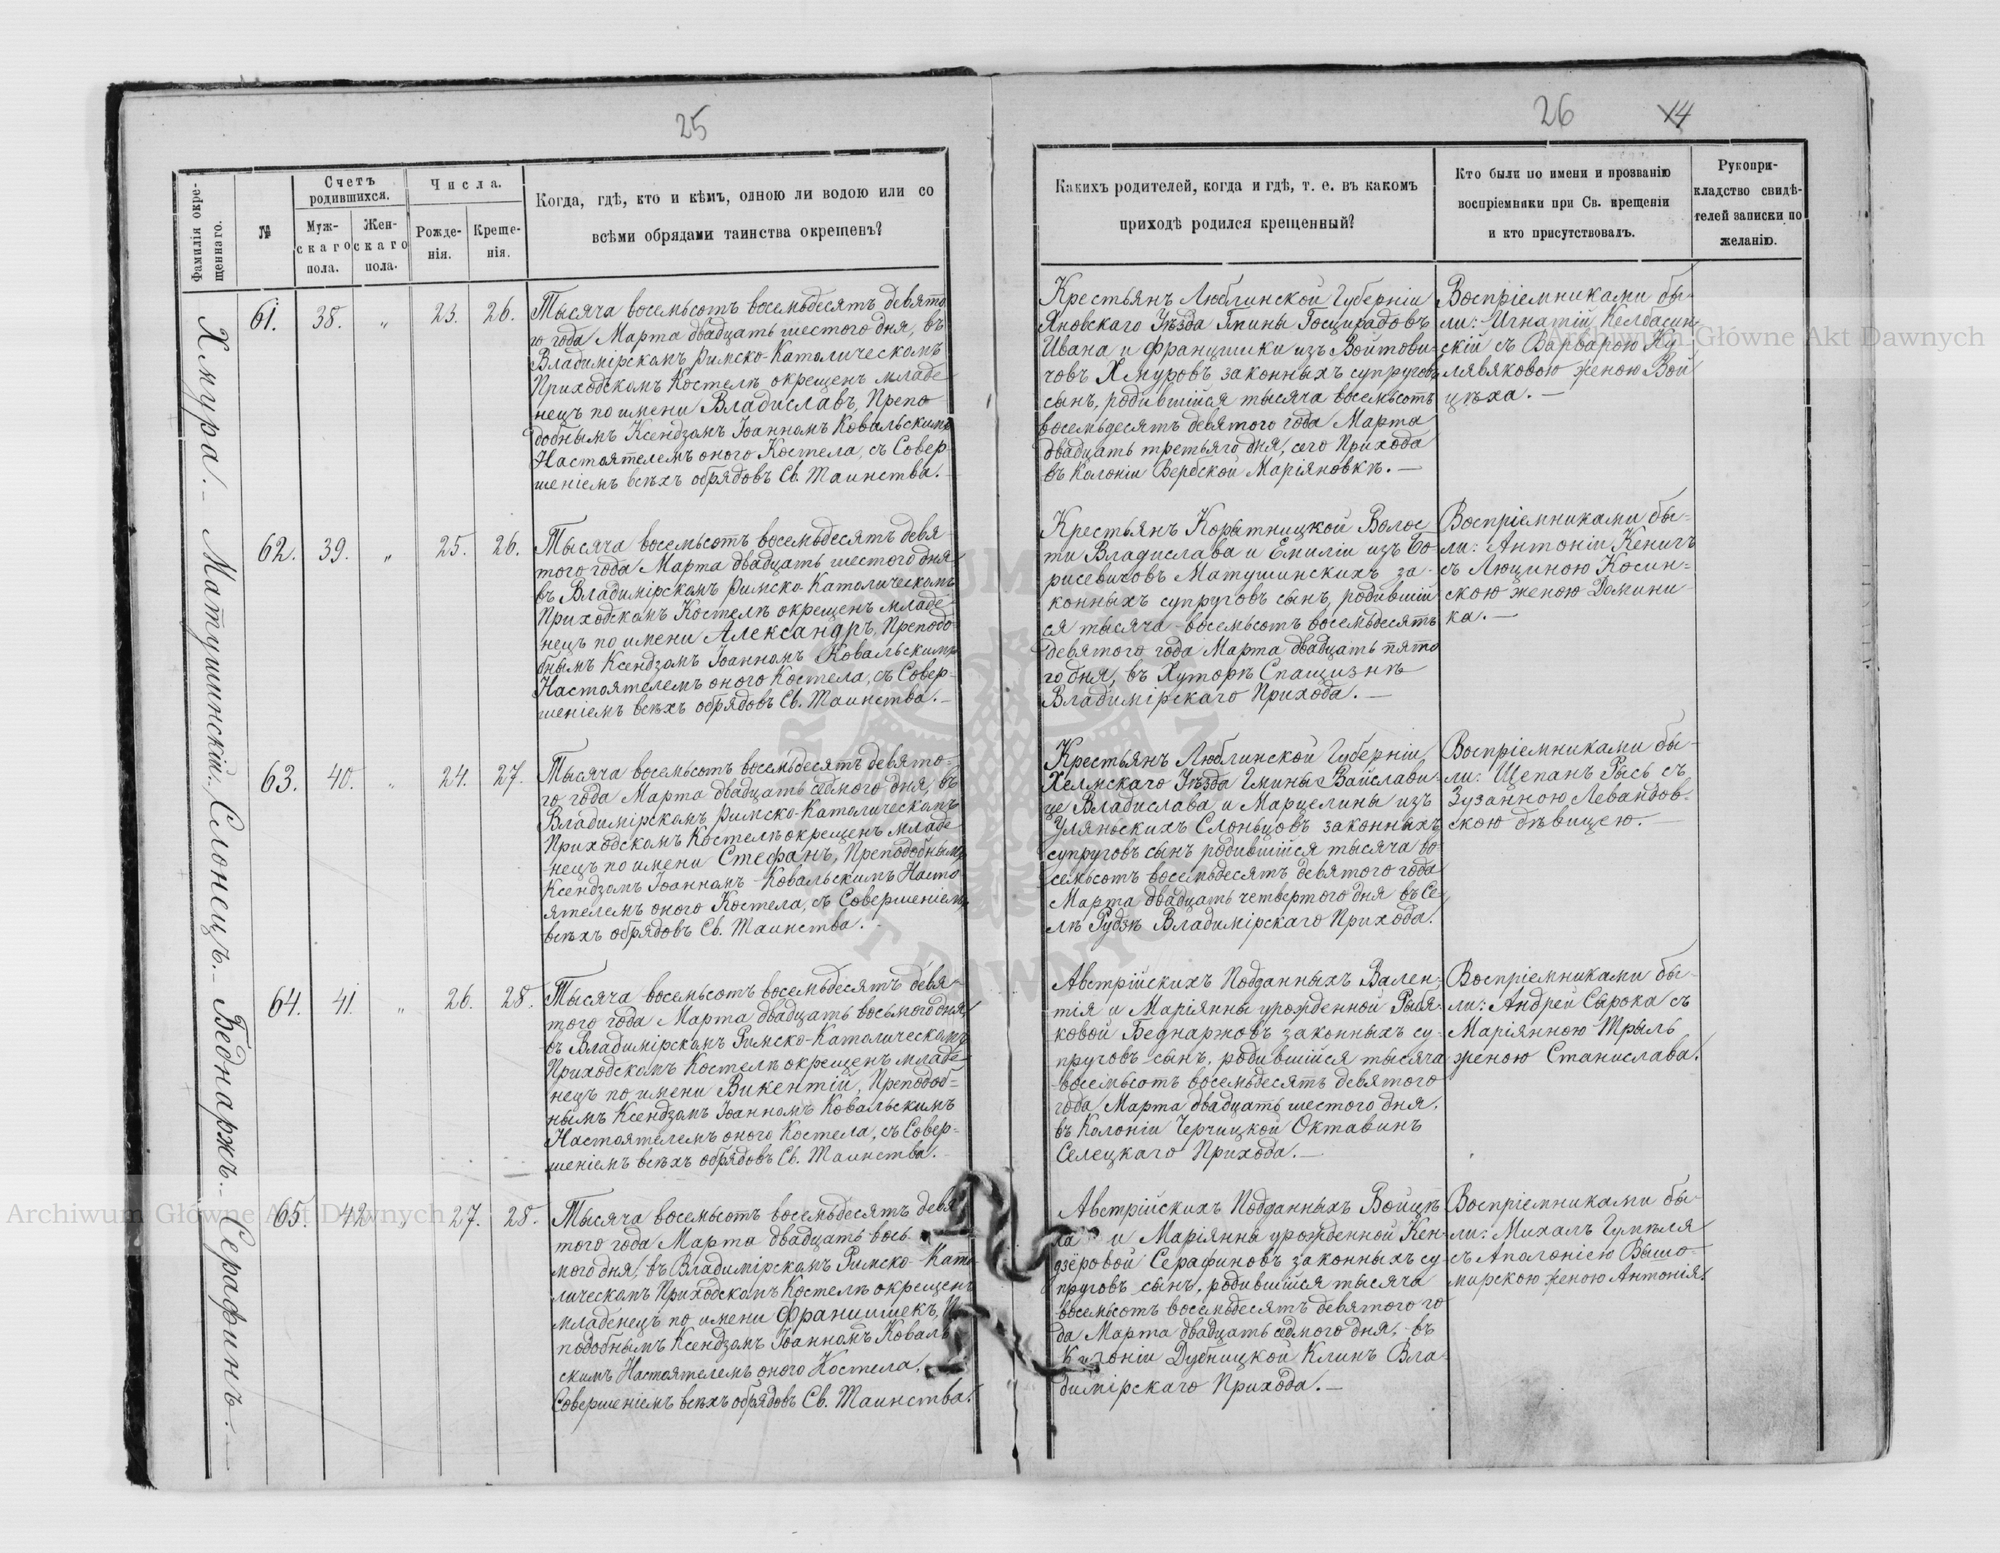 25
Фамилія окре-
щеннаго.
№
Счетъ
родившихся.
Муж-
скаго
пола.
Жен-
скаго
пола.
Числа.
Рожде-
нія.
Креще-
нія.
Когда, гдѣ, кто и кѣмъ, одною ли водою или со
всѣми обрядами таинства окрещенъ?
Хмура. — Матушинскій. Слонецъ. — Беднаржъ. — Серафинъ. —
61. 38. „ 23. 26.
Тысяча восемьсотъ восемьдесятъ девято
го года Марта двадцать шестого дня, въ
Владимірскомъ Римско-Католическомъ
Приходскомъ Костелѣ окрещенъ младе
нецъ по имени Владиславъ, Препо
добнымъ Ксендзомъ Іоанномъ Ковальскимъ
Настоятелемъ оного Костела, съ Совер-
шеніемъ всѣхъ обрядовъ Св. Таинства. —
62. 39. „ 25. 26.
Тысяча восемьсотъ восемьдесятъ девя
того года Марта двадцать шестого дня
въ Владимірскомъ Римско-Католическомъ
Приходскомъ Костелѣ окрещенъ младе
нецъ по имени Александръ, Преподо
бнымъ Ксендзомъ Іоанномъ Ковальскимъ
Настоятелемъ оного Костела, съ Совер-
шеніемъ всѣхъ обрядовъ Св. Таинства. —
63. 40. „ 24. 27.
Тысяча восемьсотъ восемьдесятъ девято-
го года Марта двадцать седмого дня, въ
Владимірскомъ Римско-Католическомъ
Приходскомъ Костелѣ окрещенъ младе
нецъ по имени Стефанъ, Преподобнымъ
Ксендзомъ Іоанномъ Ковальскимъ Насто
ятелемъ оного Костела, съ Совершеніемъ
всѣхъ обрядовъ Св. Таинства. -
64. 41. „ 26. 28.
Тысяча восемьсотъ восемьдесятъ девя-
того года Марта двадцать восьмого дня
въ Владимірскомъ Римско-Католическомъ
Приходскомъ Костелѣ окрещенъ младе
нецъ по имени Викентій, Преподоб=
нымъ Ксендзомъ Іоанномъ Ковальскимъ
Настоятелемъ оного Костела, съ Совер-
шеніемъ всѣхъ обрядовъ Св. Таинства. -
65. 42 „ 27. 28.
Тысяча восемьсотъ восемьдесятъ девя
того года Марта двадцать вось-
мого дня, въ Владимірскомъ Римско-Като
лическомъ Приходскомъ Костелѣ окрещенъ
младенецъ по имени Францишекъ,
подобнымъ Ксендзомъ Іоанномъ Коваль
скимъ Настоятелемъ оного Костела,
Совершеніемъ всѣхъ обрядовъ Св. Таинства.
26 14
Какихъ родителей, когда и гдѣ, т. е. въ какомъ
приходѣ родился крещенный?
Кто были по имени и прозванію
воспріемники при Св. крещеніи
и кто присутствовалъ.
Рукопри-
кладство свидѣ-
телей записки по
желанію.
Крестьянъ Люблинской Губерніи
Яновскаго Уѣзда Гмины Госцирадовъ
Ивана и Францишки изъ Войтови-
човъ Хмуровъ законныхъ супруговъ
сынъ, родившійся тысяча восемьсотъ
восемьдесятъ девятого года Марта
двадцать третьяго дня, сего Прихода
въ Колоніи Вербской Маріяновкѣ. —
Воспріемниками бы-
ли: Игнатій Келбасин-
скій съ Варварою Ку
лявяковою женою Вой
цѣха. —
Крестьянъ Корытницкой Волос
ти Владислава и Емиліи изъ Бо-
рисевичовъ Матушинскихъ за-
конныхъ супруговъ сынъ, родившій
ся тысяча восемьсотъ восемьдесятъ
девятого года Марта двадцать пято
го дня, въ Хуторѣ Спащизнѣ
Владимірскаго Прихода. —
Воспріемниками бы-
ли: Антоній Кеничъ
съ Люциною Косин-
скою женою Домини
ка. —
Крестьянъ Люблинской Губерніи
Хелмскаго Уѣзда Гмины Войслави-
це Владислава и Марцелины изъ
Уляньскихъ Слоньцовъ законныхъ
супруговъ сынъ родившійся тысяча во
семьсотъ восемьдесятъ девятого года
Марта двадцать четвертого дня въ Се-
лѣ Рудзѣ Владимірскаго Прихода.
Воспріемниками бы-
ли: Щепанъ Рысь съ
Зузанною Левандов-
скою дѣвицею. —
Австрійскихъ Подданныхъ Вален-
тія и Маріянны урожденной Рыбя-
ковой Беднаржовъ законныхъ су-
пруговъ сынъ, родившійся тысяча
восемьсотъ восемьдесятъ девятого
года Марта двадцать шестого дня,
въ Колоніи Черчицкой Октавинъ
Селецкаго Прихода. —
Воспріемниками бы-
ли: Андрей Сырока съ
Маріянною Трыль
женою Станислава.
Австрійскихъ Подданныхъ Войцѣ
ха и Маріянны урожденной Кен-
дзёровой Серафиновъ законныхъ су
пруговъ сынъ, родившійся тысяча
восемьсотъ восемьдесятъ девятого го
да Марта двадцать седмого дня, въ
Колоніи Дубницкой Клинъ Вла-
димірскаго Прихода. —
Воспріемниками бы-
ли: Михалъ Гумѣля
съ Аполоніею Вышо-
мирскою женою Антонія.
Archiwum Główne Akt Dawnych
Archiwum Główne Akt Dawnych